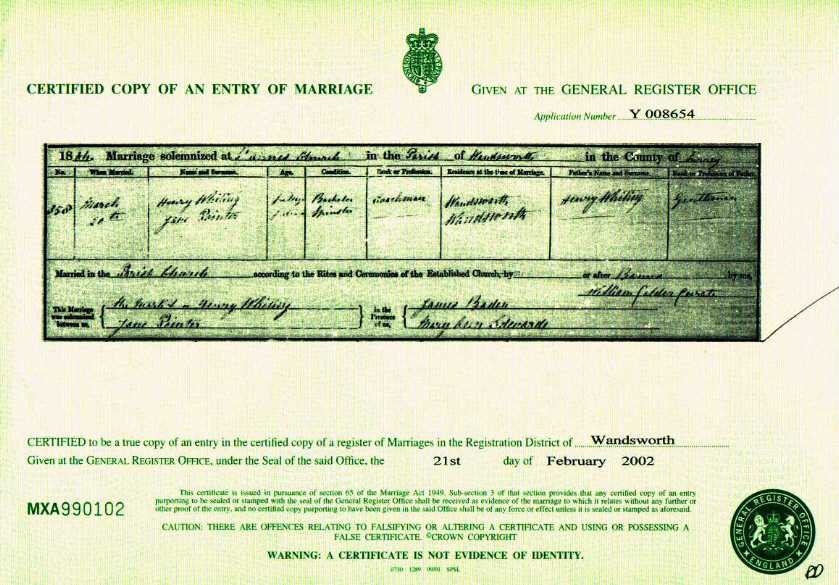 CERTIFIED COPY OF AN ENTRY OF MARRIAGE
GIVEN AT THE GENERAL REGISTER OFFICE
Application Number Y 008654
18 Marriage solemnized at Church in the Parish of Wandsworth in the County of Surrey
No. When Married. Name and Surname. Age. Condition. Rank or Profession. Residence at the time of Marriage. Father's Name and Surname. Rank or Profession of Father.
358 March 20th Henry Whiting Bachelor Coachman Wandsworth Henry Whiting Gentleman
Jane Pointer Spinster Wandsworth
Married in the Parish Church according to the Rites and Ceremonies of the Established Church, by or after Banns by me,
William Calder Curate
This Marriage was solemnized between us, Henry Whiting in the Presence of us, James Baden
Jane Pointer Mary Ann Edwards
CERTIFIED to be a true copy of an entry in the certified copy of a register of Marriages in the Registration District of Wandsworth
Given at the GENERAL REGISTER OFFICE, under the Seal of the said Office, the 21st day of February 2002
MXA990102
This certificate is issued in pursuance of section 65 of the Marriage Act 1949. Sub-section 3 of that section provides that any certified copy of an entry
purporting to be sealed or stamped with the seal of the General Register Office shall be received as evidence of the marriage to which it relates without any further or
other proof of the entry, and no certified copy purporting to have been given in the said Office shall be of any force or effect unless it is sealed or stamped as aforesaid.
CAUTION: THERE ARE OFFENCES RELATING TO FALSIFYING OR ALTERING A CERTIFICATE AND USING OR POSSESSING A
FALSE CERTIFICATE. ©CROWN COPYRIGHT
WARNING: A CERTIFICATE IS NOT EVIDENCE OF IDENTITY.
GENERAL REGISTER OFFICE
ENGLAND